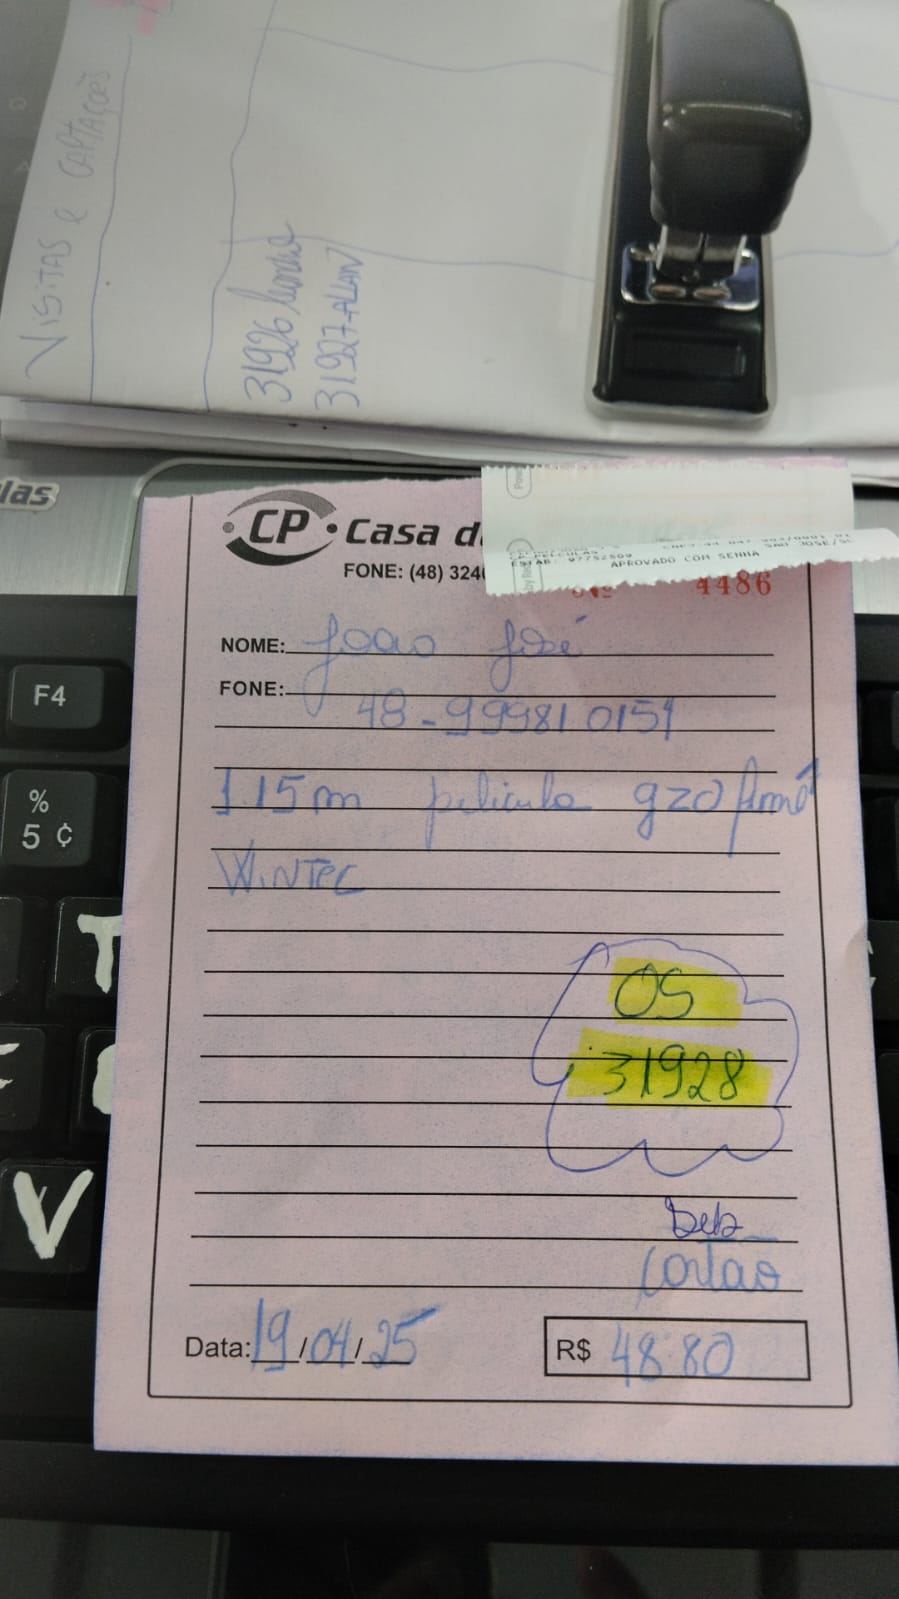 VISITAS e CAPTAÇÕES
31926
31927-ALLAN
las
CP Casa d
FONE: (48) 324
CP PELICULAS
SAO JOSE/SC
ESTAB: 97752509
APROVADO COM SENHA
Nº 4486
NOME: João José
FONE:
48-999810151
1.15m película g20 fumê
WINTEC
OS
31928
Deb
Cartão
Data: 19/04/25
R$ 48.80
F4
%
5 ¢
T
V